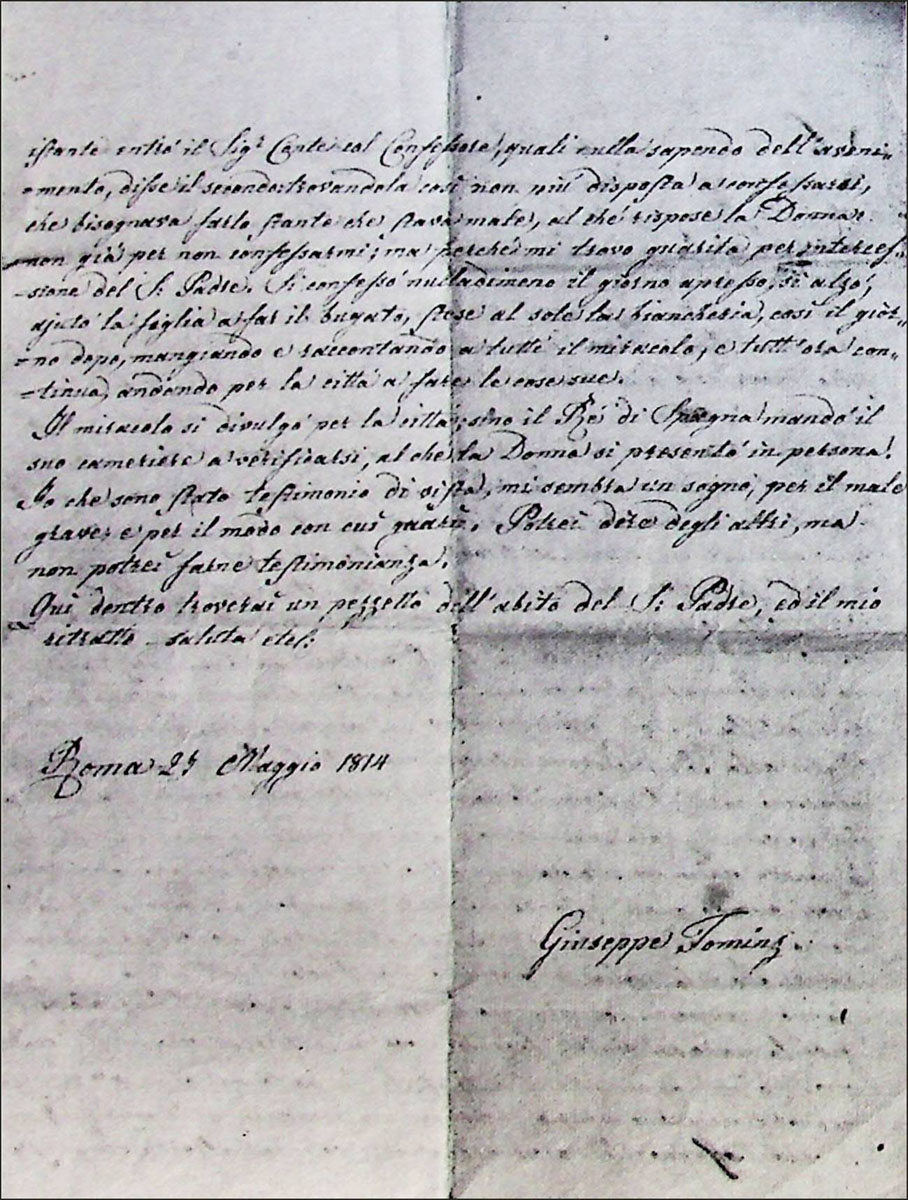 istante entrò il Sig.r Conte col Confessore, quali nulla sapendo dell'aveni=
=mento, disse il secondo trovandola così non più disposta a confessarsi,
che bisognava farlo stante che stava male, al che rispose la Donna:
non già per non confessarmi; ma perché mi trovo guarita per interces=
=sione del S. Padre. Si confessò nulladimeno il giorno apresso, si alzò,
ajutò la figlia a far il bugato, stese al sole la biancheria, così il gior=
=no dopo, mangiando e raccontando a tutti il miracolo, e tutt'ora con=
=tinua, andando per la città a fare le cose sue.
Il miracolo si divulgò per la città, sino il Ré di Spagna mandò il
suo cameriere a verificarsi, al che la Donna si presentò in persona.
Io che sono stato testimonio di vista, mi sembra un sogno, per il male
grave, e per il modo con cui guarì. Potrei dire degli altri, ma
non potrei farne testimonianza.
Qui dentro troverai un pezzetto dell'abito del S. Padre, ed il mio
ritratto - saluta
Roma 25 Maggio 1814
Giuseppe Tominz